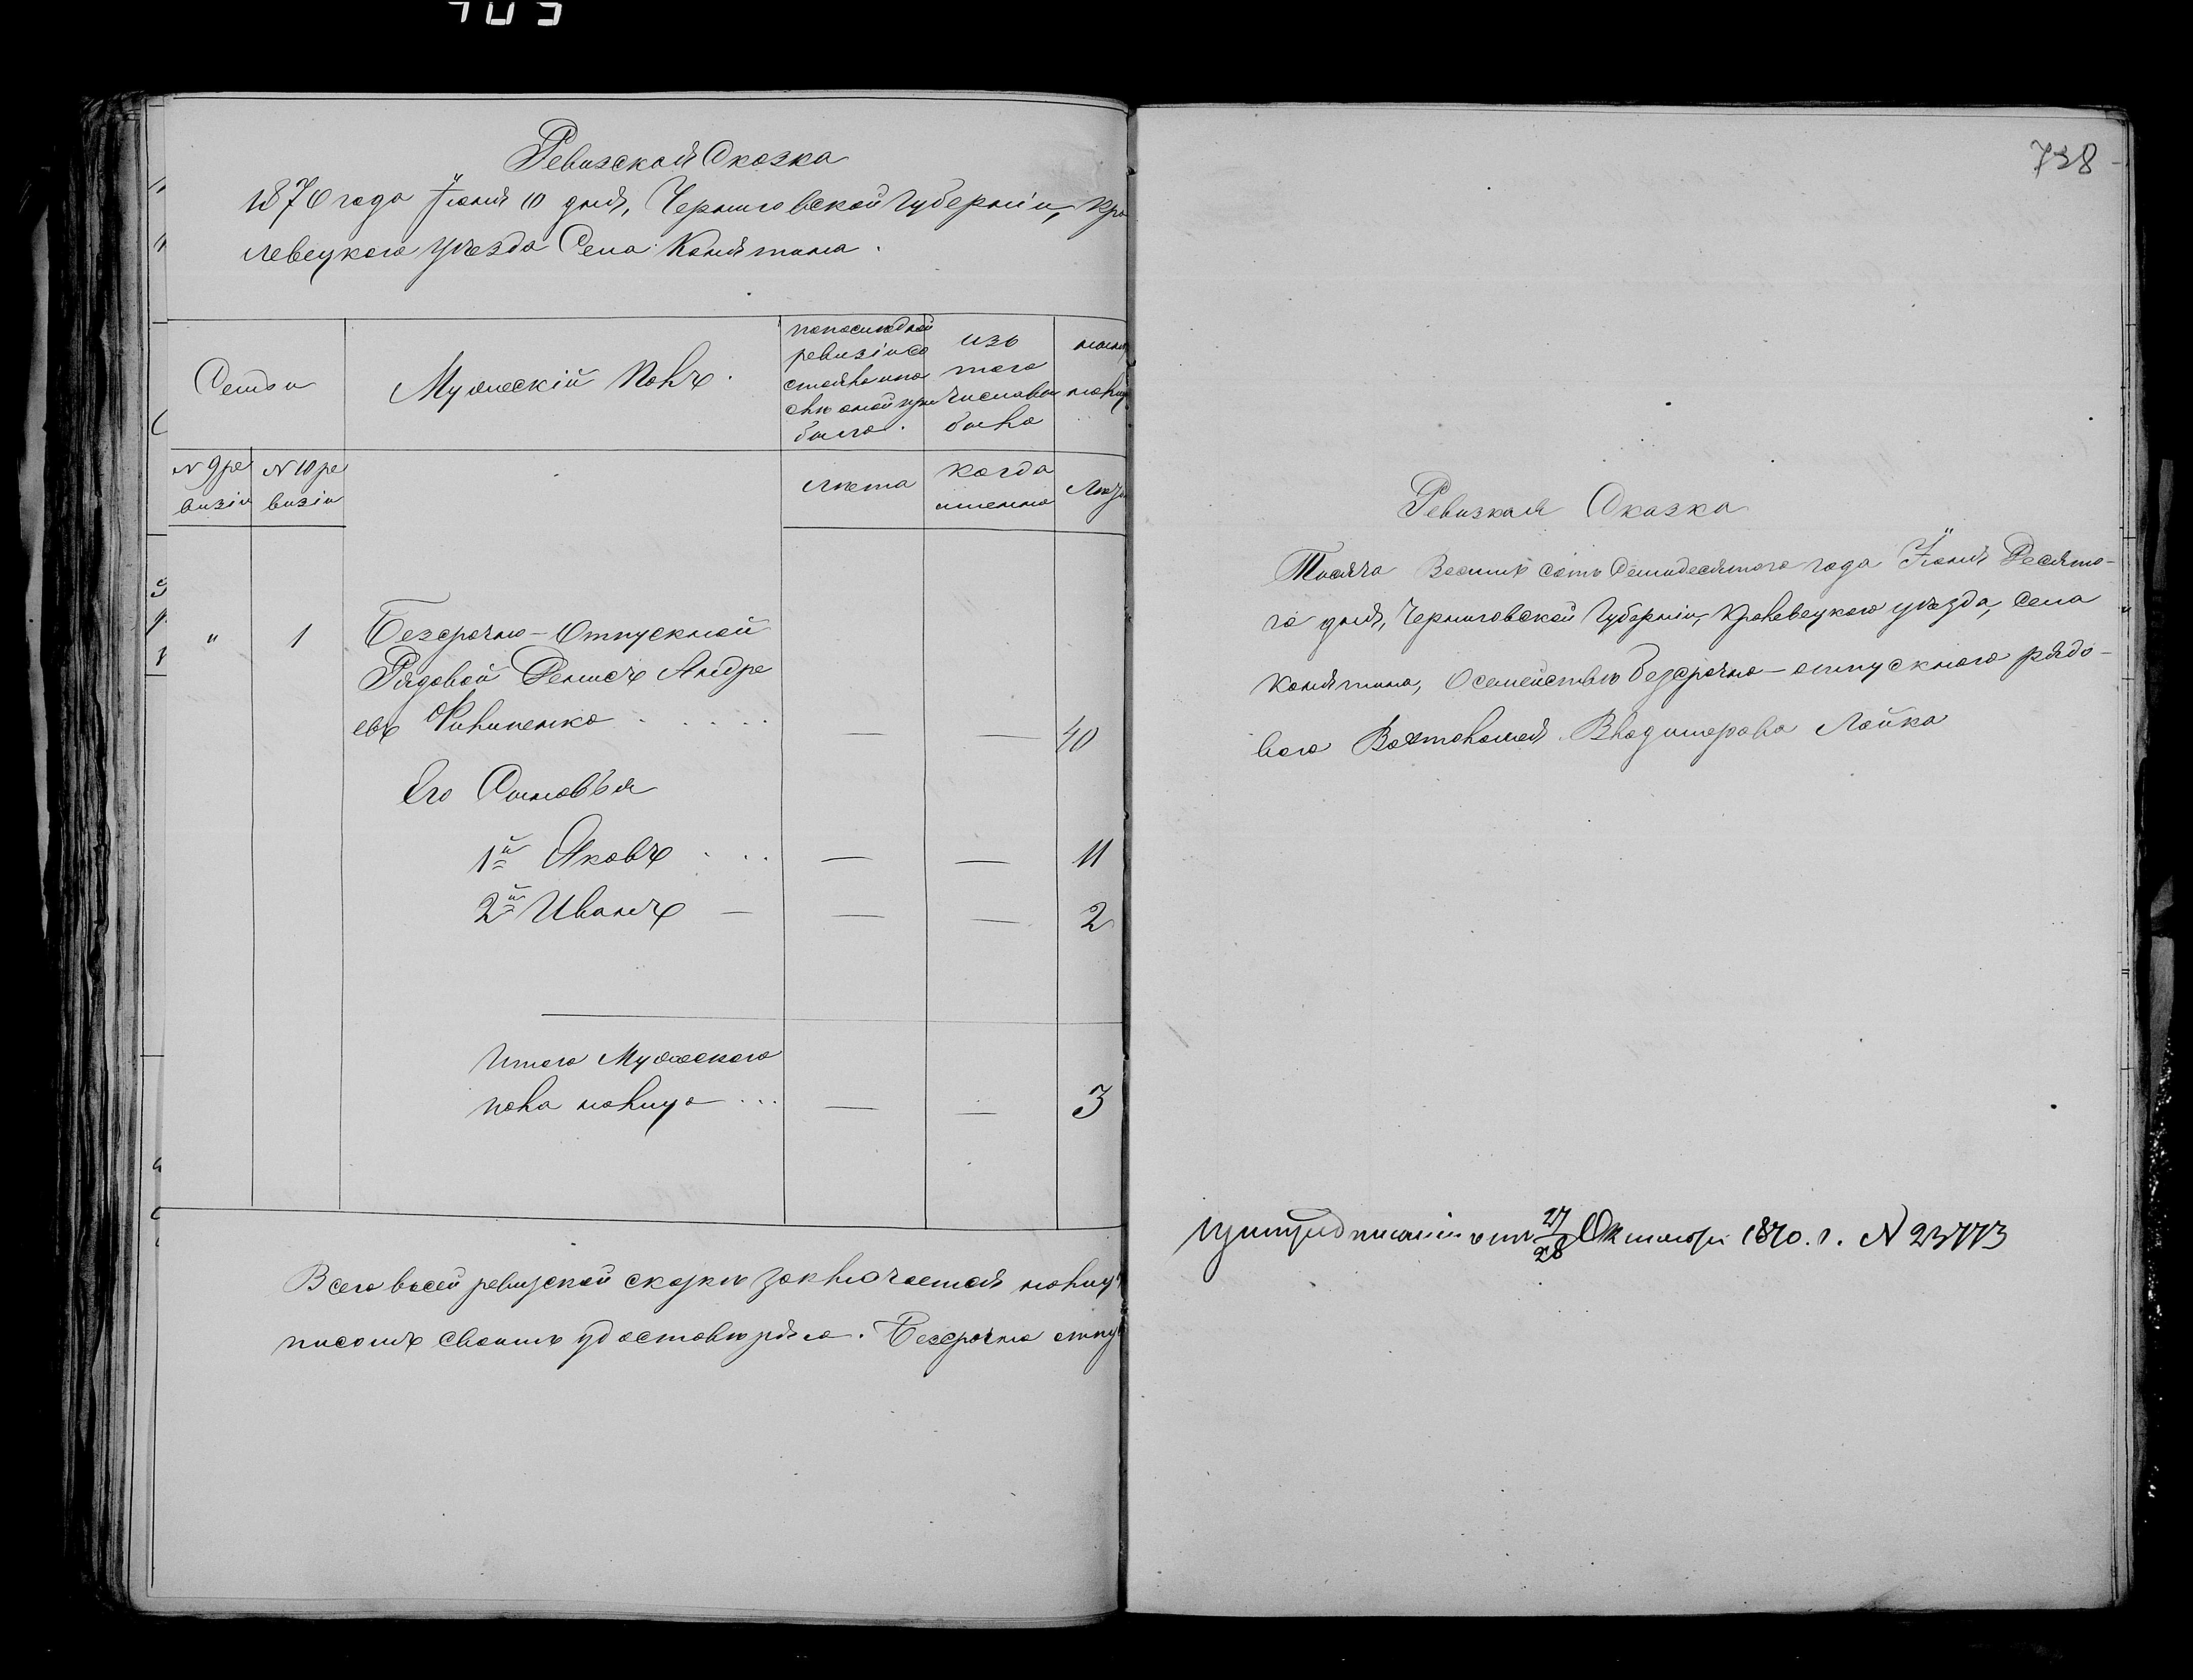 Ревизская Сказка
1870 года Іюня 10 дня, Черниговской Губерніи, Кро
левецкого уѣзда Села Конятина.
Семьи
Мужескій Полъ.
по последней
ревизіи со
стояло и по
слѣ оной при
было.
изъ
того
числа вы
было
нынѣ
налиц
N 9 ре
визіи
N 10 ре
визіи
лѣта
когда
именно
Лѣта
" 1 Безсрочно-Отпускной
Рядовой Денисъ Андре
евъ Филипенко . . . . . — — 40
Его Сыновья
1й Яковъ . . . — — 11
2й Иванъ — — — 2
Итого Мужескаго
пола налицо ... — — 3
Всего въ сей ревизской сказкѣ заключается налиц
писомъ своимъ удостовѣряю. Безсрочно отпу
738
Ревизкая Сказка
Тысяча Восимъ сотъ Семидесятого года Іюня Десято-
го дня, Черниговской Губерніи, Кролевецкого уѣзда, Села
Конятина, О семействѣ безсрочно-отпускного рядо-
вого Вахтоломея Владимерова Лойка
При предписании отъ 27/28 Октября 1870. г. N 23773